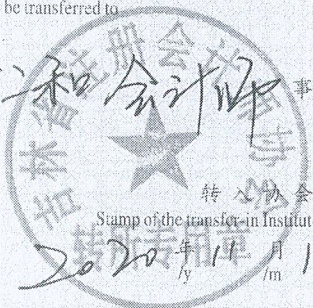 be transferred to
和会计师 事
吉林省注册会计师协会
转入协会
Stamp of the transfer-in Institut
转所专用章
2020 年 11 月 1
/y /m